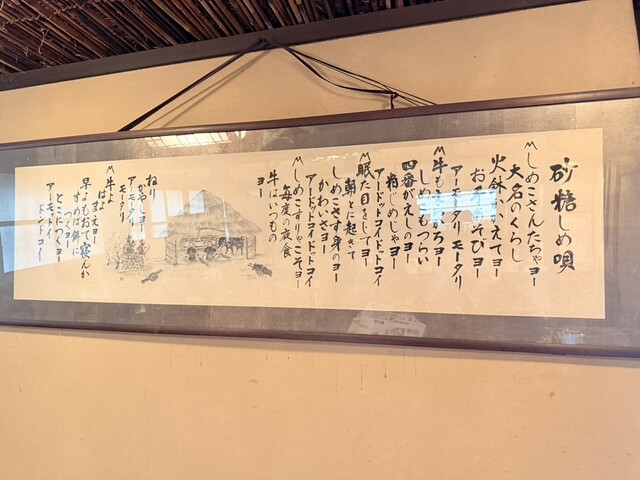 砂糖しめ唄
〽しめこさんたちゃヨー
大名のくらし
火鉢かかえてヨー
お茶あそびヨー
アーモータリ モータリ
〽牛もつらかろヨー
しめ もつらい
四番がえしのヨー
じめじゃヨー
アードットコイドットコイ
〽眠た目をしてヨー
朝とに起きて
しめこさす身のヨー
かわいさヨー
アードットコイドットコイ
〽しめこすりゃこそヨー
毎度の夜食
牛はいつもの
ヨー
ねり
ヨー
アーモータリ
モータリ
〽牛よ
まえヨー
早よもおて寝んか
すめば餅に
ヨー
とこにつくヨー
アーモットイ
ドットコイ